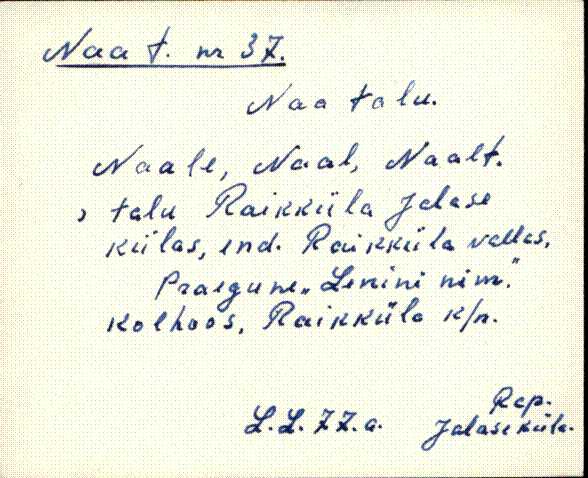 Naa t. nr 37.
Naa talu.
Naale, Naal, Naalt.
, talu Raikküla Jalase
külas, end. Raikküla vallas,
Praegune „Lenini nim."
kolhoos, Raikküla k/n.
Rap.
L.L. 77.a. Jalaseküla.